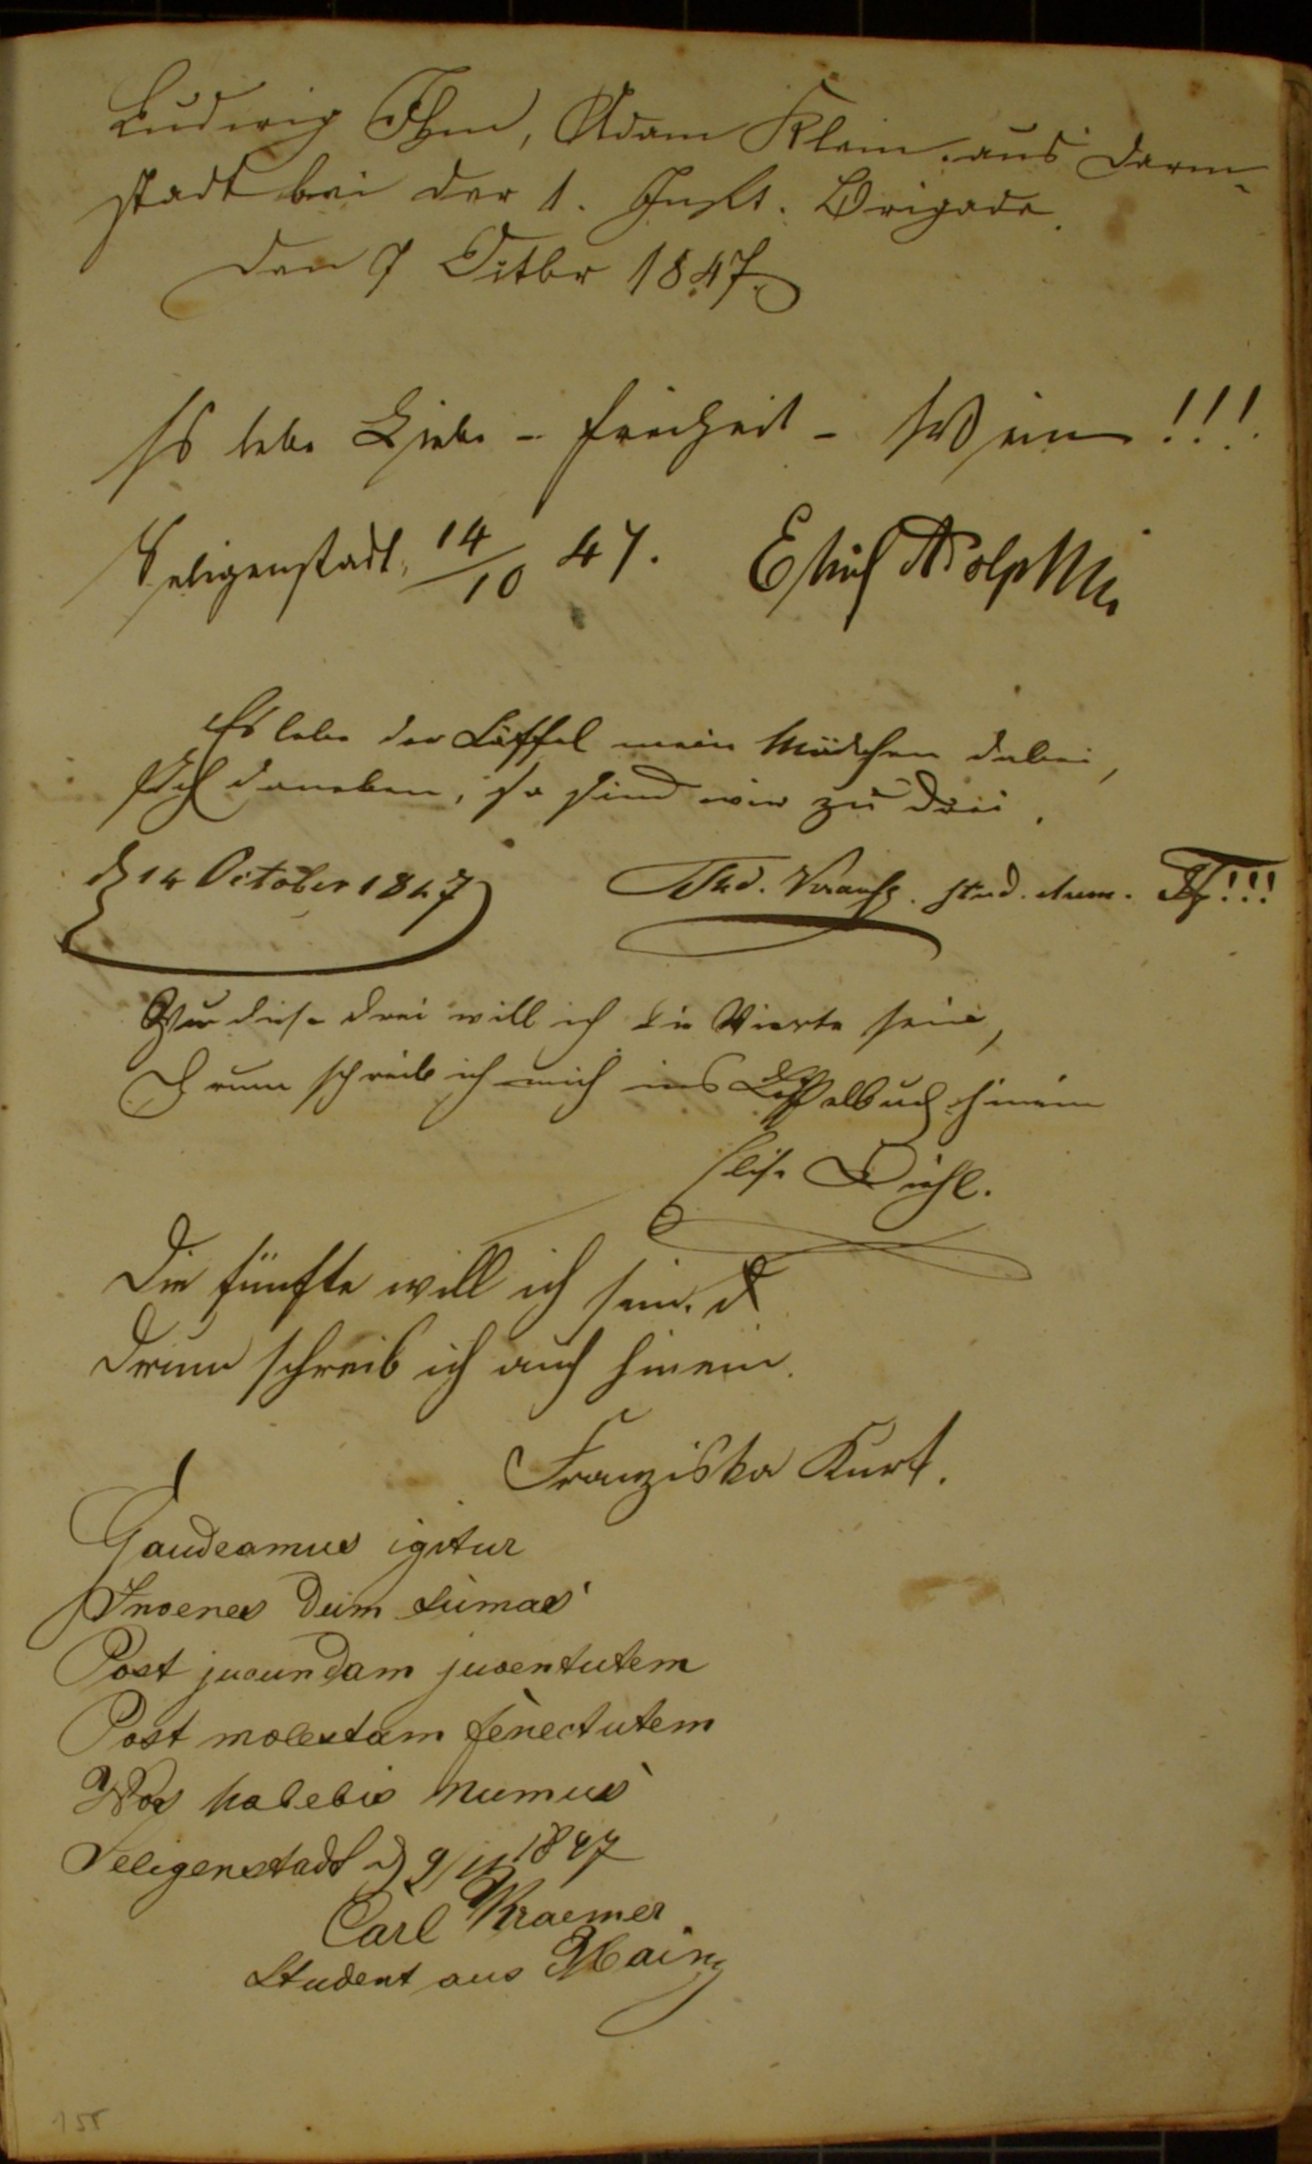 Ludwig Ihm, Adam Klein. aus Darm-
stadt bei der 1. Inft. Brigade.
den 7 Octbr 1847.
Es lebe Liebe - Freiheit - Wein!!!
Seligenstadt, 14/10 47.
Es lebe der Löffel mein Mädchen dabei,
Ich daneben, so sind wir zu drei.
d 14 October 1847 stud.
Für diese drei will ich die Vierte sein,
Drum schreib ich mich ins Löffelbuch hinein
Elise Diehl.
Die fünfte will ich sein.
Drum schreib ich auch hinein.
Franziska Kurt.
Gaudeamus igitur
Juvenes dum sumus
Post jucundam juventutem
Post molestam senectutem
Nos habebis numus
Seligenstadt d 9/11 1847
Carl Kraemer
Student aus Mainz
155